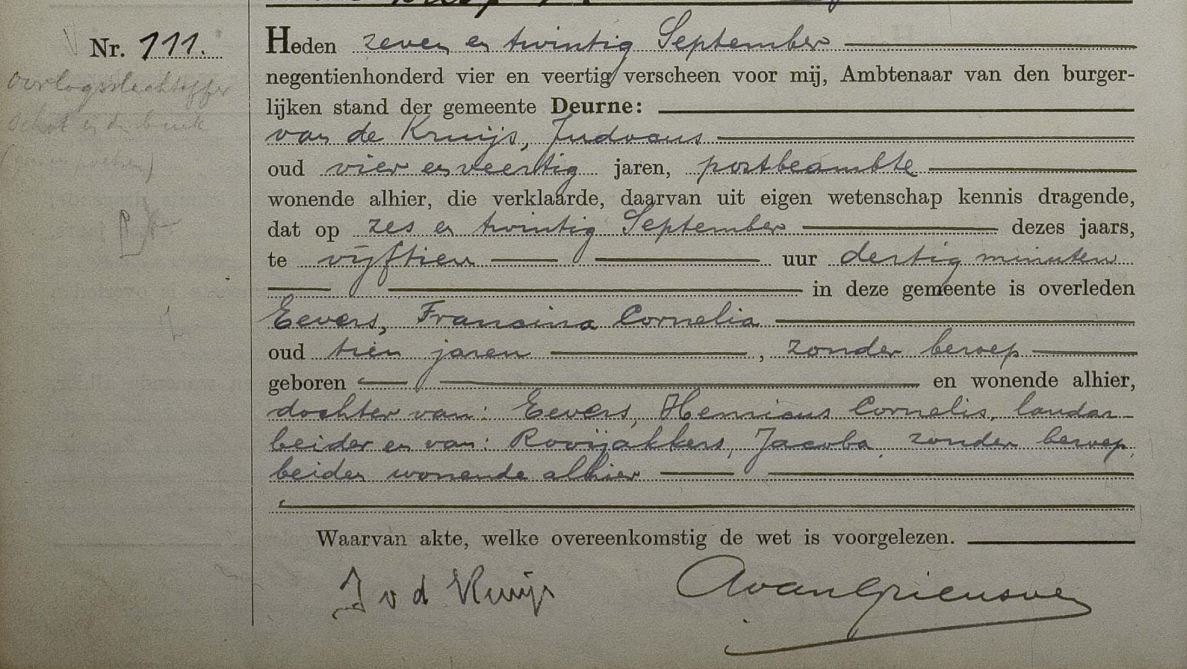 Nr. 111.
oorlogsslachtoffer
Heden zeven en twintig September
negentienhonderd vier en veertig verscheen voor mij, Ambtenaar van den burger-
lijken stand der gemeente Deurne:
van de Kruijs, Judocus
oud vier en veertig jaren, postbeambte
wonende alhier, die verklaarde, daarvan uit eigen wetenschap kennis dragende,
dat op zes en twintig September dezes jaars,
te vijftien uur dertig minuten
in deze gemeente is overleden
Eevers, Francina Cornelia
oud tien jaren, zonder beroep
geboren en wonende alhier,
dochter van: Eevers, Henricus Cornelis, landar-
beider en van: Rooijakkers, Jacoba, zonder beroep,
beiden wonende alhier
Waarvan akte, welke overeenkomstig de wet is voorgelezen.
J v d Kruijs
AvanGriensven